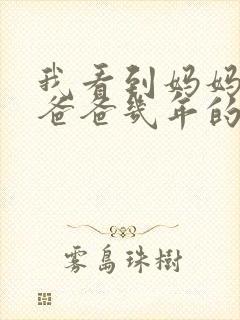 我看到妈妈
爸爸几年的
雾岛珠樹